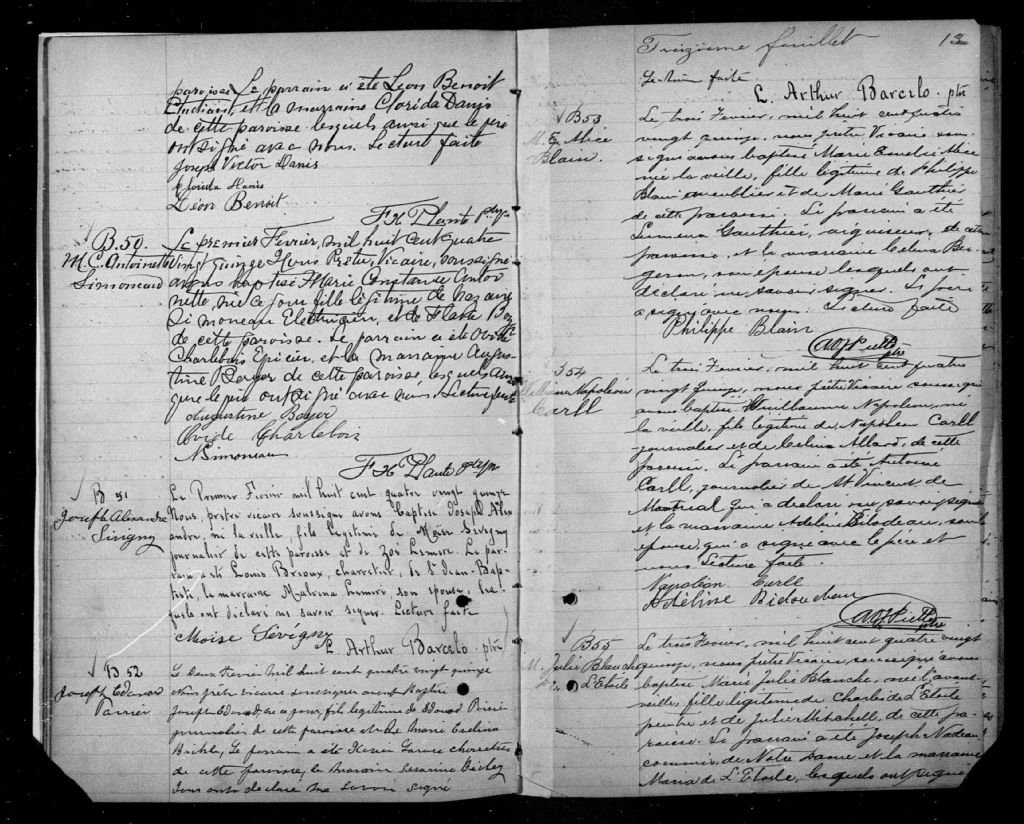 paroisse. Le parrain a été Léon Benoit
Etudiant, et la marraine Clorida Danis
de cette paroisse lesquels ainsi que le père
ont signé avec nous. Lecture faite
Joseph Victor Danis
Clorida Danis
Léon Benoit
F X Plante
B. 50.
M. C. Antoinette
Simoneau
Le premier Février, mil huit cent quatre
vingt quinze Nous Prêtre, Vicaire, soussigné
avons baptisé Marie Constance Antoi
nette, née ce jour fille légitime de Nazaire
Simoneau Electricien, et de
de cette paroisse. Le parrain a été Ovide
Charlebois Epicier, et la marraine Augus
tine Boyer de cette paroisse, lesquels ain
que le père ont signé avec nous. Lecture faite
Augustine Boyer
Ovide Charlebois
N Simoneau
F X Plante
B 51
Joseph Alexandre
Sévigny
Le Premier Février mil huit cent quatre vingt quinze
Nous, prêtre vicaire soussigné avons baptisé Joseph Alex
andre, né la veille, fils légitime de Moïse Sévigny
journalier de cette paroisse et de Zoé Lemire. Le par-
rain a été Louis Brioux, charretier, de St Jean-Bap-
tiste, la marraine Malvina Lemire, son épouse, les-
quels ont déclaré ne savoir signer. Lecture faite
Moise Sévigny
L. Arthur Barcelo. ptre
B 52
Joseph Edouard
Le Deux Fevrier mil huit cent quatre vingt quinze
Nous prêtre vicaire soussigner avons Baptisé
Joseph Edouard, né ce jour, fils légitime de Edouard
journalier de cette paroisse et de Marie Exelina
Le parrain a été charretier
de cette paroisse, la marraine
tous ont déclaré ne savoir signé
Treizième feuillet
13
Lecture faite
L. Arthur Barcelo. ptre
B53
M. E. Alice
Blain.
Le trois Fevrier, mil huit cent quatre
vingt quinze, nous prêtre Vicaire sous-
signé avons baptisé Marie Emelie Alice
née la veille, fille légitime de Philippe
Blain meublier et de Marie Gauthier
de cette paroisse. Le parrain a été
Gauthier, aiguiseur, de cette
paroisse, et la marraine Celina Ber
geron, son épouse lesquels ont
déclaré ne savoir signer. Le père
a signé avec nous. Lecture faite
Philippe Blain
ptre
B54
Guillaume Napoleon
Carll
Le trois Fevrier, mil huit cent quatre
vingt quinze, nous prêtre Vicaire soussigné
avons baptisé Guillaume Napoléon, né
la veille, fils légitime de Napoleon Carll
journalier et de Celina Allard, de cette
paroisse. Le parrain a été Antoine
Carll, journalier de St Vincent de
Montréal qui a déclaré ne savoir signer
et la marraine Adelaïe Bilodeau, son
épouse, qui a signé avec le père et
nous. Lecture faite.
Napoléon Carll
Adéline Bidoudeau
ptre
B55
M. Julie Blanche
L'Etoile
Le trois Fevrier, mil huit cent quatre vingt
quinze, nous prêtre Vicaire soussigné avons
baptisé Marie Julie Blanche, née l'avant
veille, fille légitime de Charles de L'Etoile
peintre et de Julie Mitchell, de cette pa-
roisse. Le parrain a été Joseph Nadeau
commis, de Notre Dame et la marraine
Maria de L'Etoile, lesquels ont signé